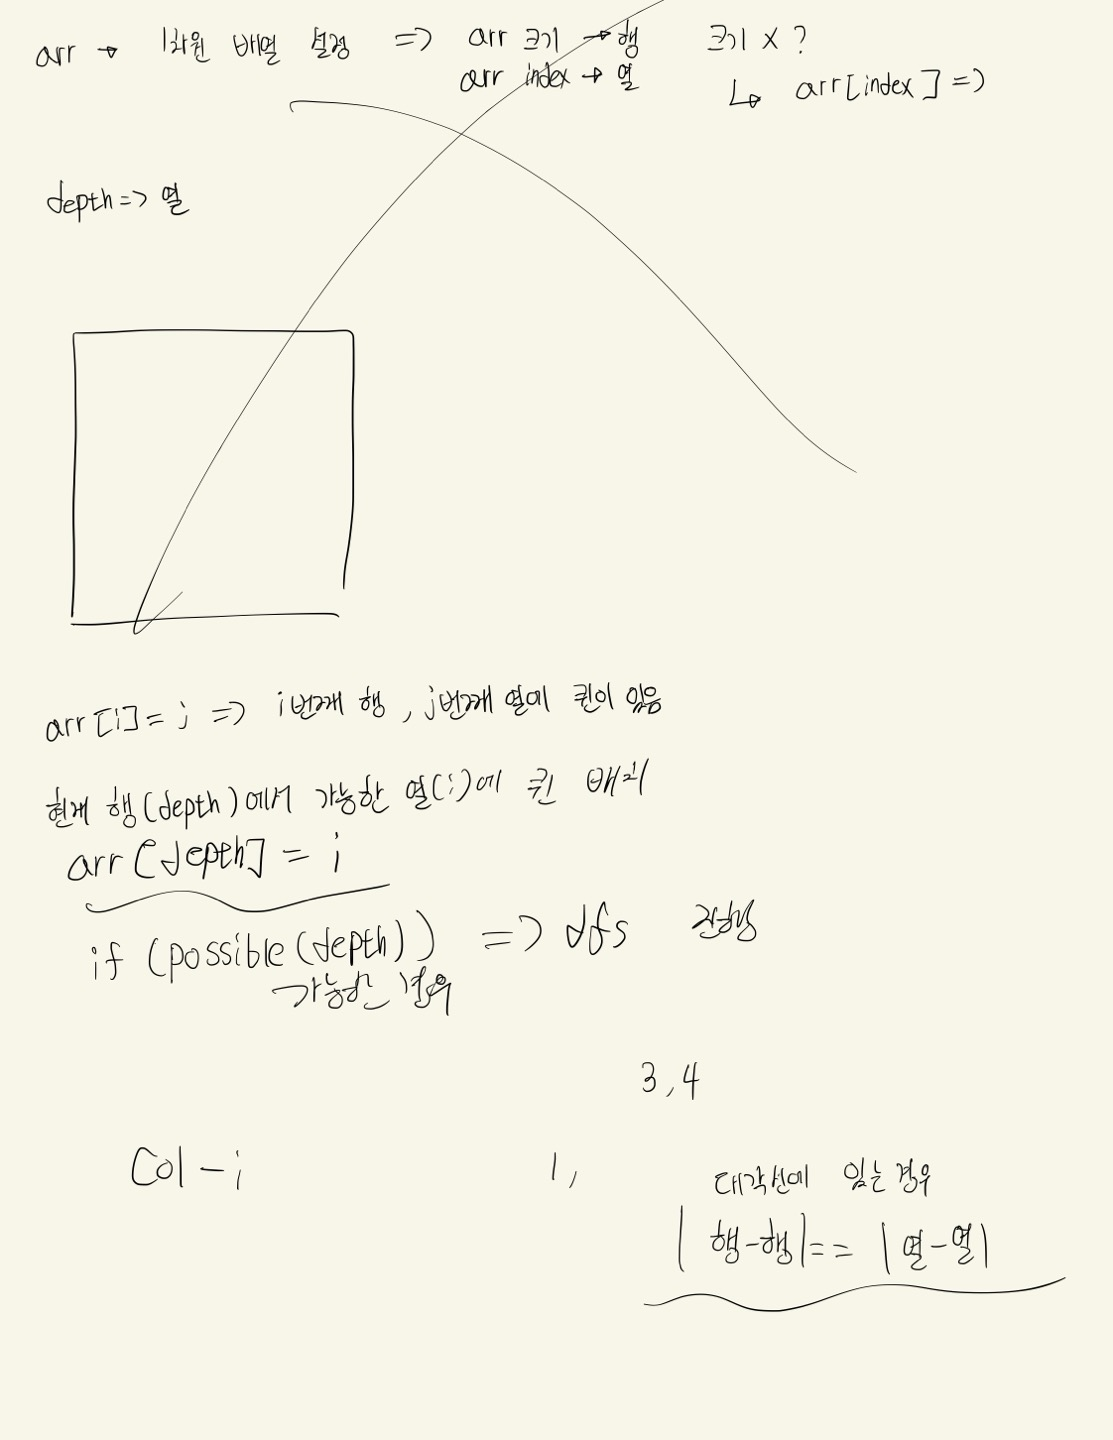 arr → 1차원 배열 설정 => arr 크기 → 행 크기 x ?
arr index → 열 ↳ arr[index] =>
depth => 열
arr[i] = j => i번째 행, j번째 열에 퀸이 있음
현재 행(depth)에서 가능한 열(i)에 퀸 배치
arr[depth] = i
if (possible(depth)) => dfs 진행
가능한 경우
3, 4
Col - i 1,
대각선에 있는 경우
|행-행| == |열-열|